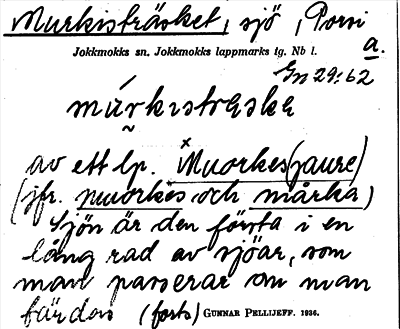 Murkisträsket, sjö, Porsi
Jokkmokks sn. Jokkmokks lappmarks tg. Nb l.
a.
Gn 29:62
múrkıstraskə
av ett lp. ˣMuorkes(jaure)
(jfr. muorkēs och mårka)
Sjön är den första i en
lång rad av sjöar, som
man passerar om man
färdas (forts)
GUNNAR PELLIJEFF. 1936.